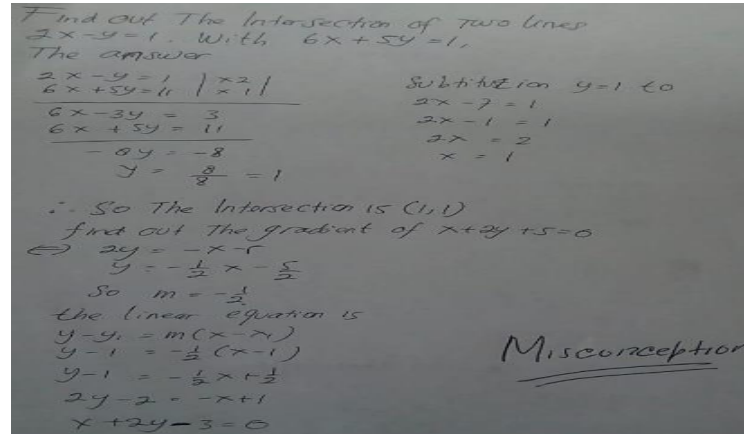 Find out The Intersection of Two lines
2x-y=1. With 6x+5y=1,
The answer
2x-y=1 | x2 |
6x+5y=11 | x1 |
6x-3y = 3
6x+5y = 11
-8y = -8
y = 8/8 = 1
Subtitution y=1 to
2x-7=1
2x-1=1
2x = 2
x = 1
∴ So The Intersection is (1,1)
find out The gradient of x+2y+5=0
⇔ 2y = -x-5
y = -1/2 x - 5/2
So m = -1/2
the linear equation is
y-y₁ = m(x-x₁)
y-1 = -1/2 (x-1)
y-1 = -1/2 x + 1/2
2y-2 = -x+1
x+2y-3=0
Misconception